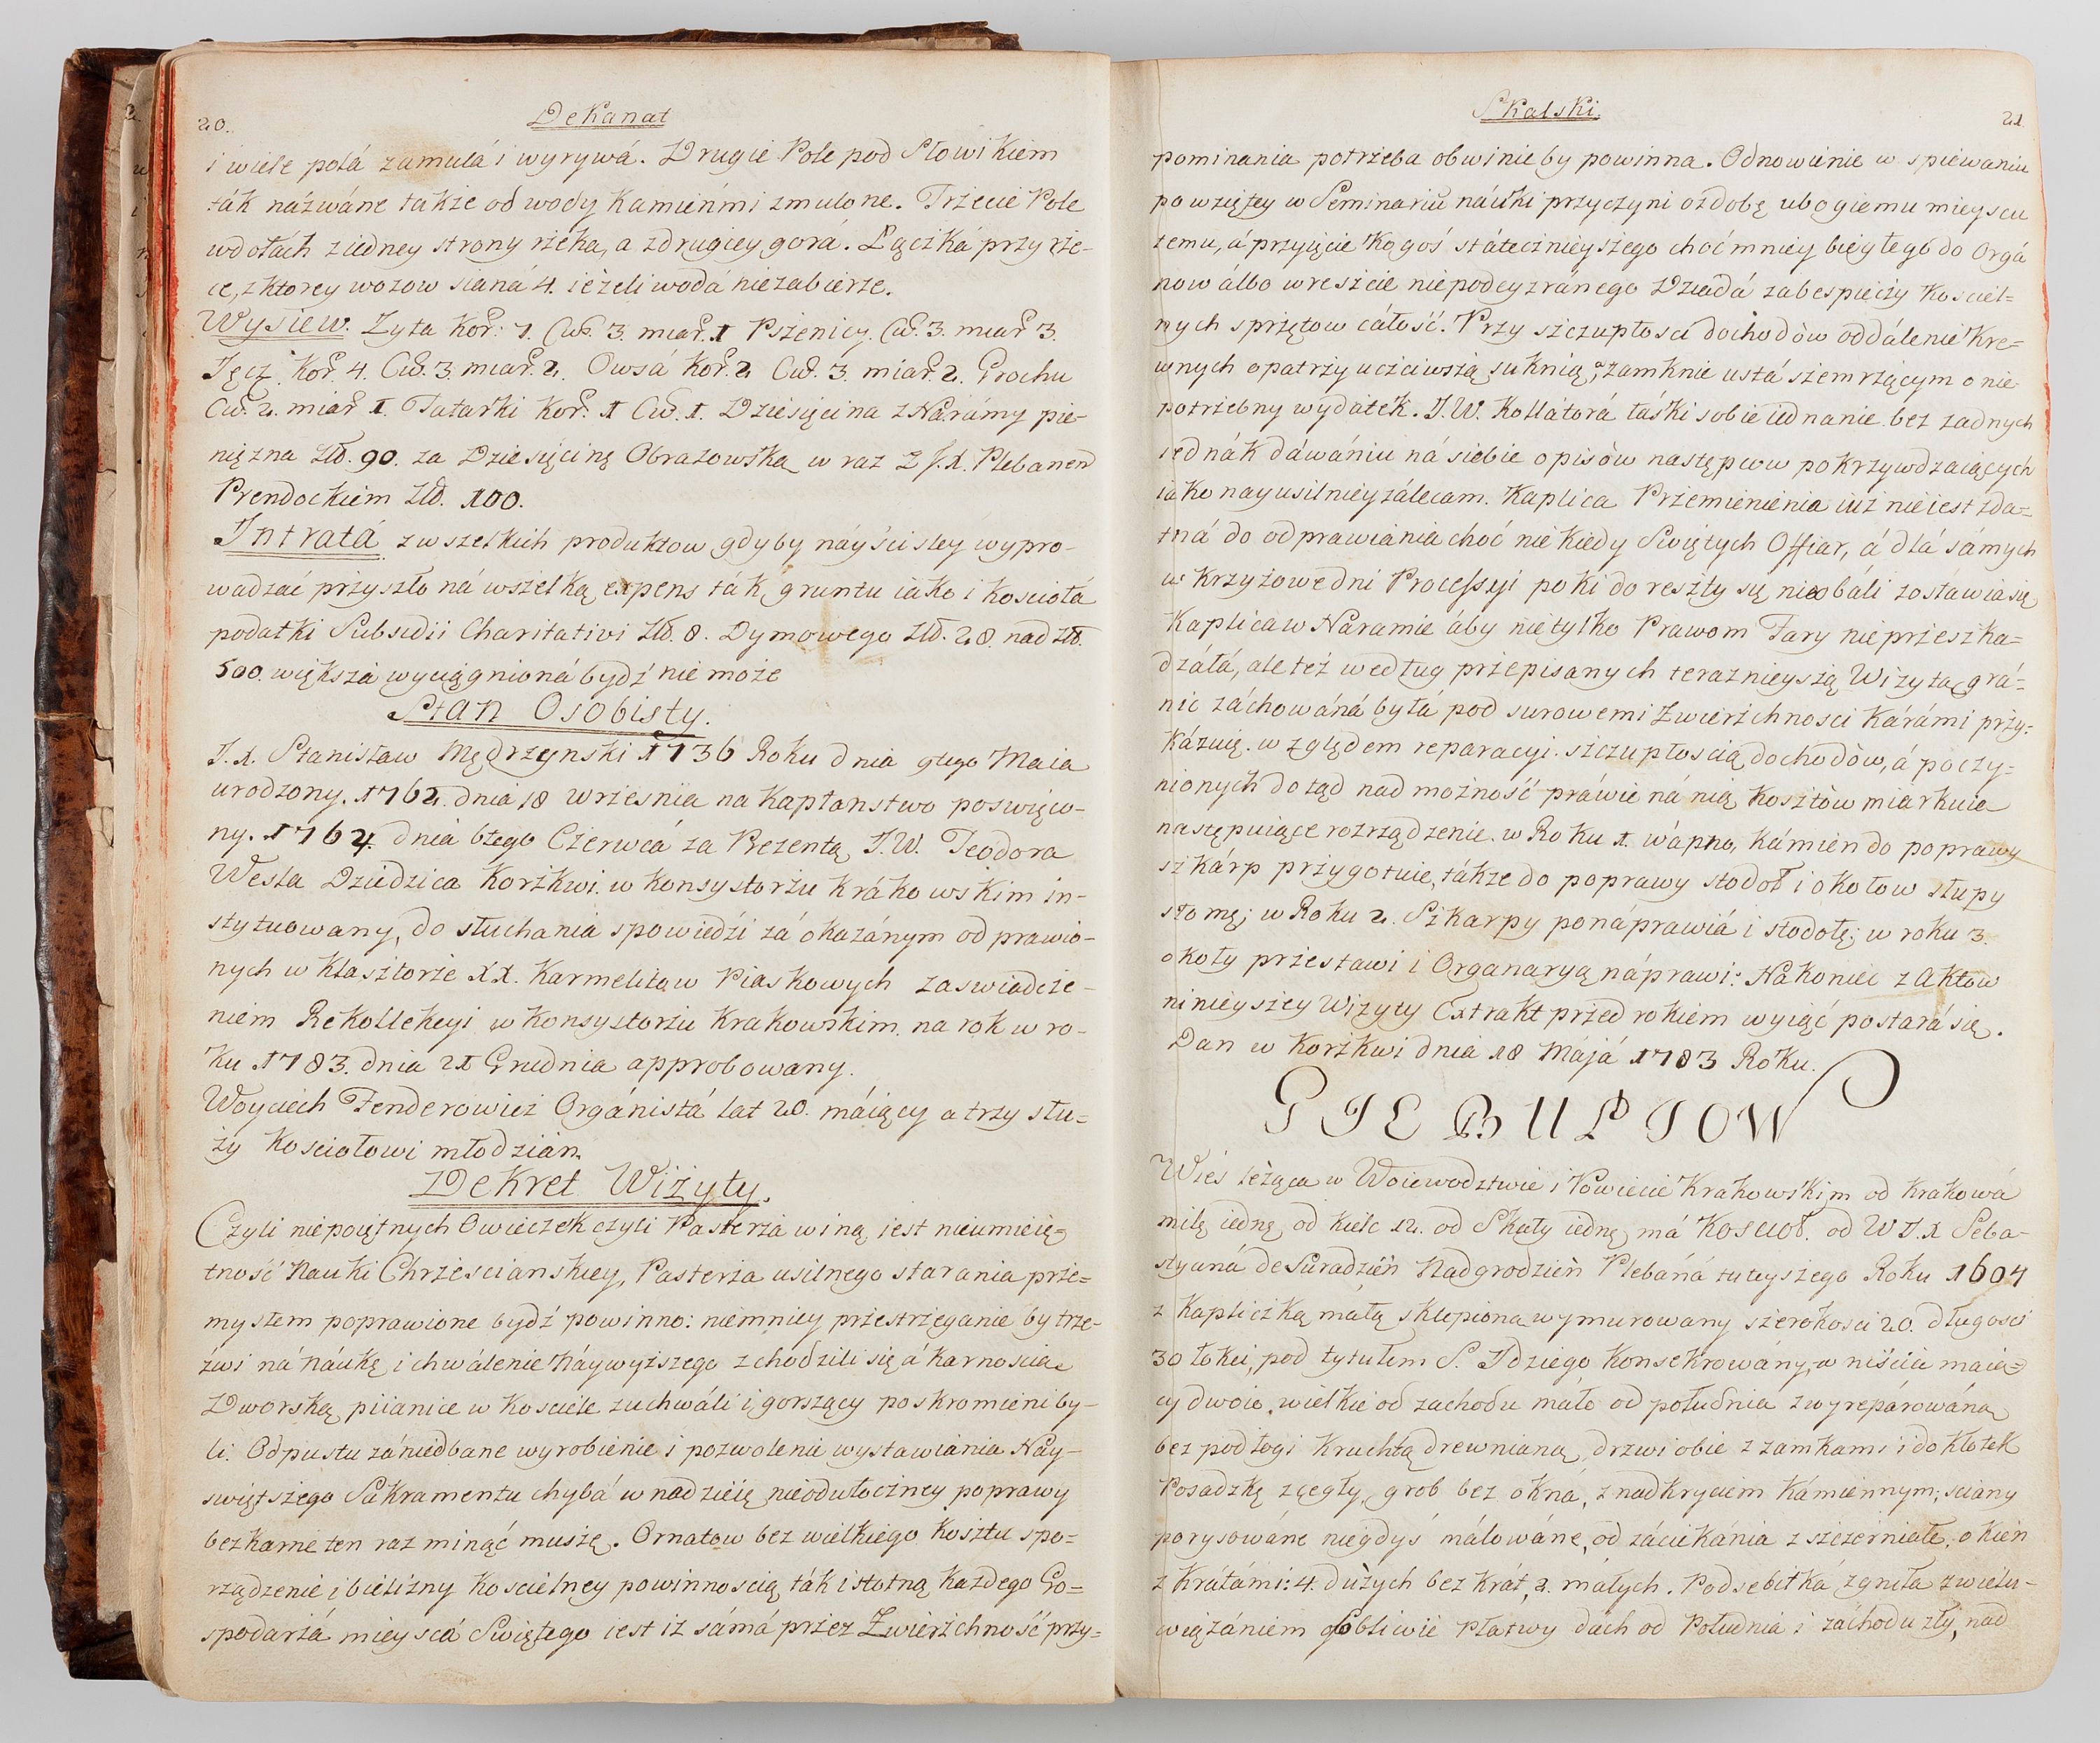 20.
Dekanat
i wiele polá zamulá i wyrywá. Drugie Pole pod Słowikiem
ták názwáne także od wody Kamieńmi zmulone. Trzecie Pole
w dołách z iedney strony rzeka, a z drugiey gorá. Łączká przy rze-
ce, z ktorey wozow siáná 4. ieżeli wodá niezabierze.
Wysiew. Zyta Kor: 7. Cw. 3. miar. 1 Pszenicy. Cw. 3. miar 3.
Jęcz. Kor. 4. Cw. 3. miar. 2. Owsá Kor. 2 Cw. 3. miar. 2. Grochu
Cw. 2. miar 1. Tatarki Kor. 1 Cw. 1. Dziesięcina z Narámy pie-
niężna Złł. 90. za Dziesięcinę Obrazowską w raz z J.X. Plebanem
Prendockiem Złł. 100.
Intratá z wszelkich produktow gdyby náyściśley wypro-
wadzać przyszło ná wszelką expens ták gruntu iáko i kościołá
podatki Subsidii Charitativi Złł. 8. Dymowego Złł. 28. nad Złł.
500. większa wyciągnioná bydź nie może
Stan Osobisty.
J.X. Stanisław Mędrzynski 1736 Roku dnia 9tego Maia
urodzony. 1762. dnia 18 Wrzesnia na Kapłanstwo poswięco-
ny. 1764. dnia 6tego Czerwcá za Prezentą J.W. Teodora
Wesla Dziedzica Korzkwi. w Konsystorzu Krákowskim in-
stytuowany, do słuchania spowiedzi zá okazánym odprawio-
nych w Klasztorze XX. Karmelitow Piaskowych zaswiadcze-
niem Rekollekcyi w Konsystorzu Krakowskim. na rok w ro-
ku 1783. dnia 21 Grudnia approbowany.
Woyciech Fenderowicz Orgánistá lat 20. máiący a trzy słu-
ży Kosciołowi młodzián.
Dekret Wizyty.
Czyli niepoiętnych Owieczek czyli Pasterza winą, jest nieumieię-
tność Nauki Chrzescianskiey, Pasterza usilnego starania prze-
mysłem poprawione bydź powinno: niemniey przestrzeganie by trze-
źwi ná náukę i chwálenie Náywyższego zchodzili się á karnoscią
Dworską, piianice w Kościele zuchwáli i gorszący poskromieni by-
li. Odpustu zániedbane wyrobienie i pozwolenie wystawiánia Nay-
świętszego Sakramentu chybá w nadzieię nieodułoczney poprawy
bezkarnie ten raz minąć muszę. Ornatow bez wielkiego kosztu spo-
rządzenie i bielizny Koscielney powinnoscią ták istotną każdego Go-
spodarzá mieyscá Swiętego iest iż sámá przez Zwierzchność przy-
Skalski.
21.
pominania potrzeba obwinieby powinna. Odnowienie w spiewaniu
powziętey w Seminariu náuki przyczyni ozdobę ubogiemu mieyscu
temu, á przyięcie Kogoś státecznieyszego choć mniey biegłego do Orgá
now álbo wreszcie niepodeyzránego Dziadá zabespieczy Kosciel-
nych sprzętow cáłość. Przy szczupłosci dochodòw oddálenie Kre-
wnych opatrzy uczciwszą suknią, zamknie ustá szemrzącym o nie
potrzebny wydatek. J.W. Kollátorá łáski sobie iednanie bez zadnych
iednák dáwániu ná siebie opisòw następcow pokrzywdzaiących
iáko nayusilniey zálecam. Kaplica Przemienienia iuż nie iest zda-
tná do odprawiania choć niekiedy Swiętych Offiar, á dlá sámych
w Krzyżowe dni Processyi poki do reszty się nieobáli zostáwia się
Kaplica w Naramie áby nie tylko Prawom Fary nie przeszka-
dzáłá, ale też według przepisanych teraznieyszą Wizytą grá-
nic záchowáná byłá pod surowemi Zwierzchnosci Kárámi przy-
kázuię. względem reparacyi. szczupłoscią dochodòw, á poczy-
nionych dotąd nad możność práwie ná nią Kosztòw miarkuie
następuiące rozrządzenie. w Roku 1. wápno, Kámień do poprawy
szkárp przygotuie, tákże do poprawy stodoł i okołow słupy
słomę; w Roku 2. Szkarpy ponáprawiá i stodołę; w roku 3.
okoły przestawi i Organaryą náprawi: Nakoniec z Aktow
ninieyszey Wizyty Extrakt przed rokiem wyiąć postará się.
Dan w Korzkwi dnia 18 Májá 1783 Roku.
GIEBUŁTOW
Wieś leżąca w Woiewodztwie i Powiecie Krakowskim od Krakowá
milę iednę od Kielc 12. od Skały iednę má Kosciół. od W J.X Seba-
styaná de Suradzień Nadgrodzień Plebáná tuteyszego Roku 1604
z Kapliczką máłą sklepioną wymurowany szerokosci 20. długosci
30 łokci, pod tytułem S. Idziego Konsekrowány, w niście maią-
cy dwoie, wielkie od zachodu máłe od południa zwyreparowáną
bez podłogi Kruchtą drewnianą, drzwi obie z zamkami i do Kłotek
Posadzkę z cegły, grob bez okná, z nadkryciem Kámiennym; sciany
porysowáne niegdyś málowáne, od záciekánia z szczerniałe; okien
z Krátámi: 4. dużych bez krát, 2. máłych. Podsebitká zgniła z wielu-
wiązániem obliwie Płatwy dach od Południa i záchodu zły, nad